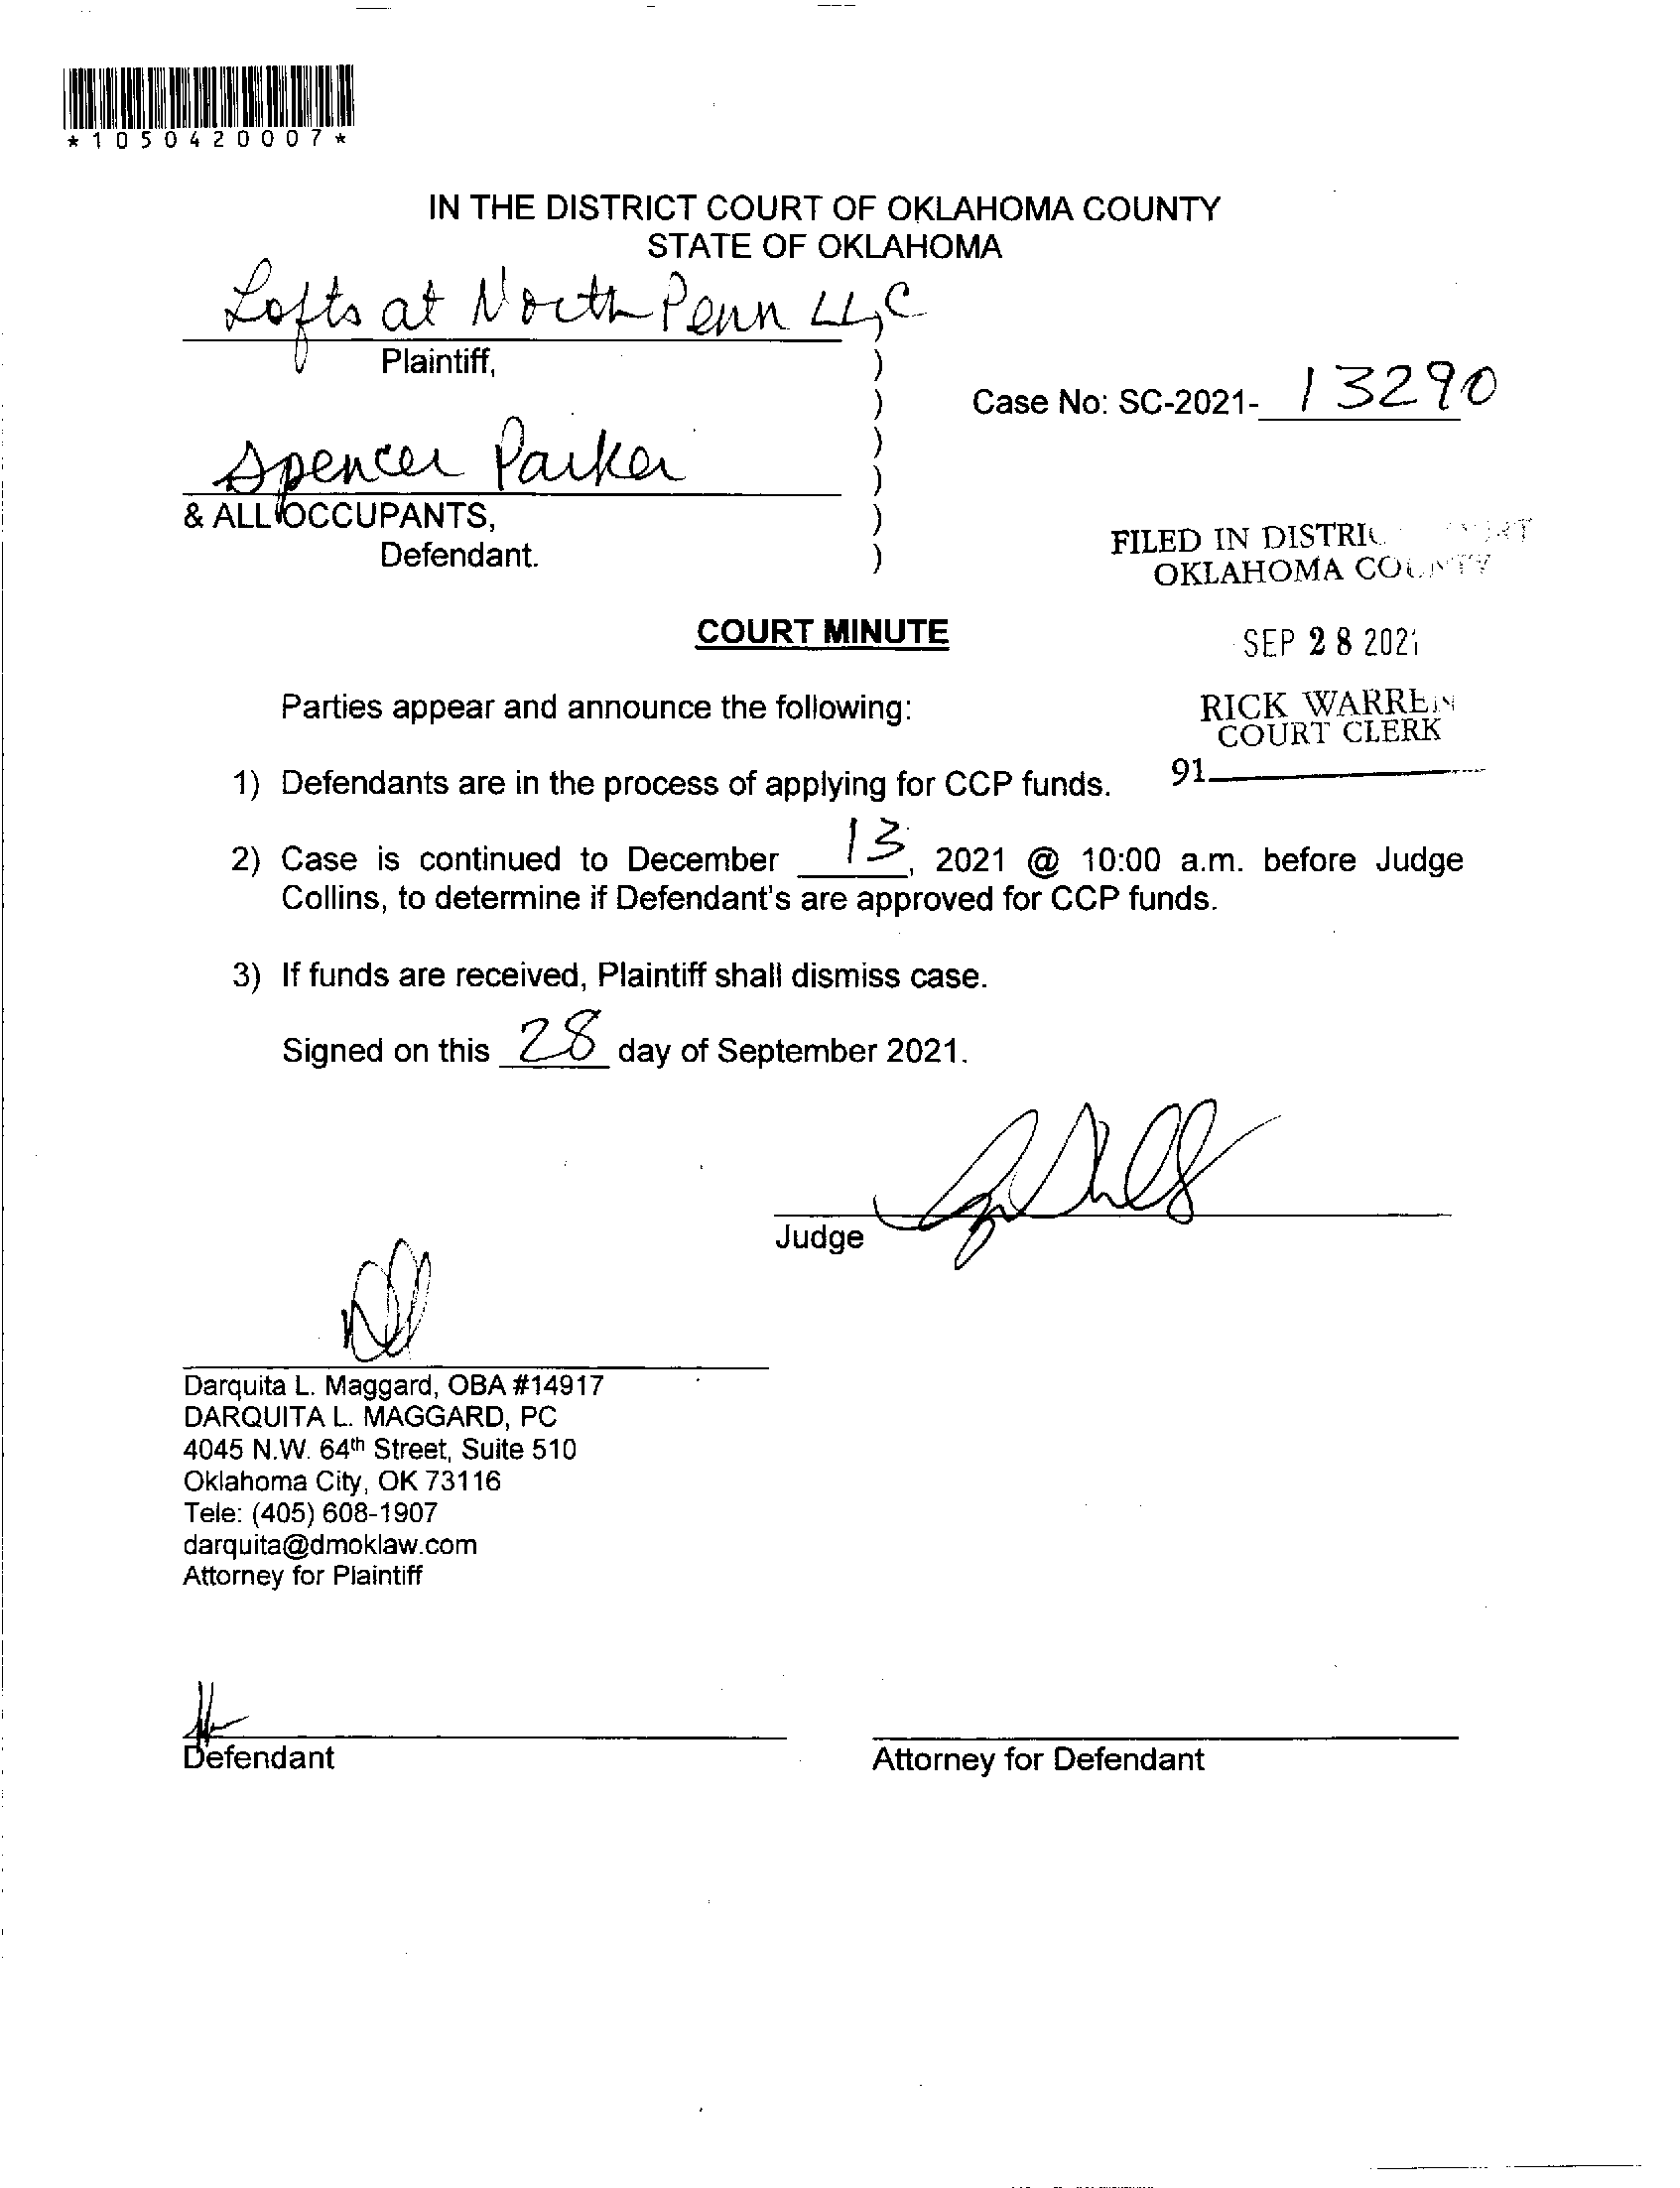 *1050420007*
IN THE DISTRICT COURT OF OKLAHOMA COUNTY
STATE OF OKLAHOMA
Lofts at North Penn LLC
Plaintiff,
Case No: SC-2021- 13290
Spencer Parker
& ALL OCCUPANTS,
Defendant.
FILED IN DISTRICT COURT
OKLAHOMA COUNTY
COURT MINUTE
SEP 28 2021
Parties appear and announce the following:
RICK WARREN
COURT CLERK
1) Defendants are in the process of applying for CCP funds.
91
2) Case is continued to December 13, 2021 @ 10:00 a.m. before Judge
Collins, to determine if Defendant's are approved for CCP funds.
3) If funds are received, Plaintiff shall dismiss case.
Signed on this 28 day of September 2021.
Judge
Darquita L. Maggard, OBA #14917
DARQUITA L. MAGGARD, PC
4045 N.W. 64th Street, Suite 510
Oklahoma City, OK 73116
Tele: (405) 608-1907
darquita@dmoklaw.com
Attorney for Plaintiff
Defendant
Attorney for Defendant